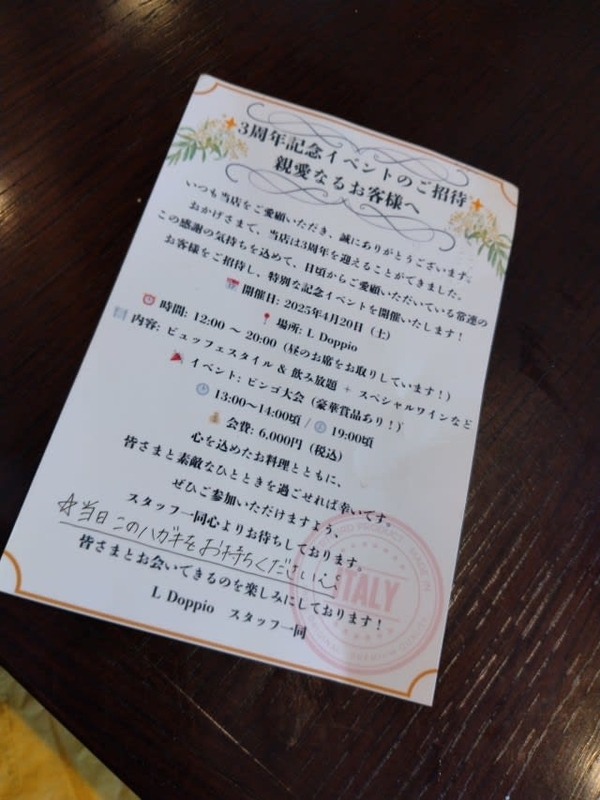 3周年記念イベントのご招待
親愛なるお客様へ
いつも当店をご愛顧いただき、誠にありがとうございます。
おかげさまで、当店は3周年を迎えることができました。
この感謝の気持ちを込めて、日頃からご愛顧いただいている常連の
お客様をご招待し、特別な記念イベントを開催いたします！
📅 開催日: 2025年4月20日（土）
📍 場所: L Doppio
⏰ 時間: 12:00 〜 20:00（昼のお席をお取りしています！）
内容: ビュッフェスタイル & 飲み放題 + スペシャルワインなど
🎉 イベント: ビンゴ大会（豪華賞品あり！）
🕐 13:00〜14:00頃 / 🕖 19:00頃
💰 会費: 6,000円（税込）
心を込めたお料理とともに、
皆さまと素敵なひとときを過ごせれば幸いです。
ぜひご参加いただけますよう、
スタッフ一同心よりお待ちしております。
☆当日このハガキをお持ちください
皆さまとお会いできるのを楽しみにしております！
L Doppio スタッフ一同
PRODUCT MADE IN
ITALY
PREMIUM QUALITY